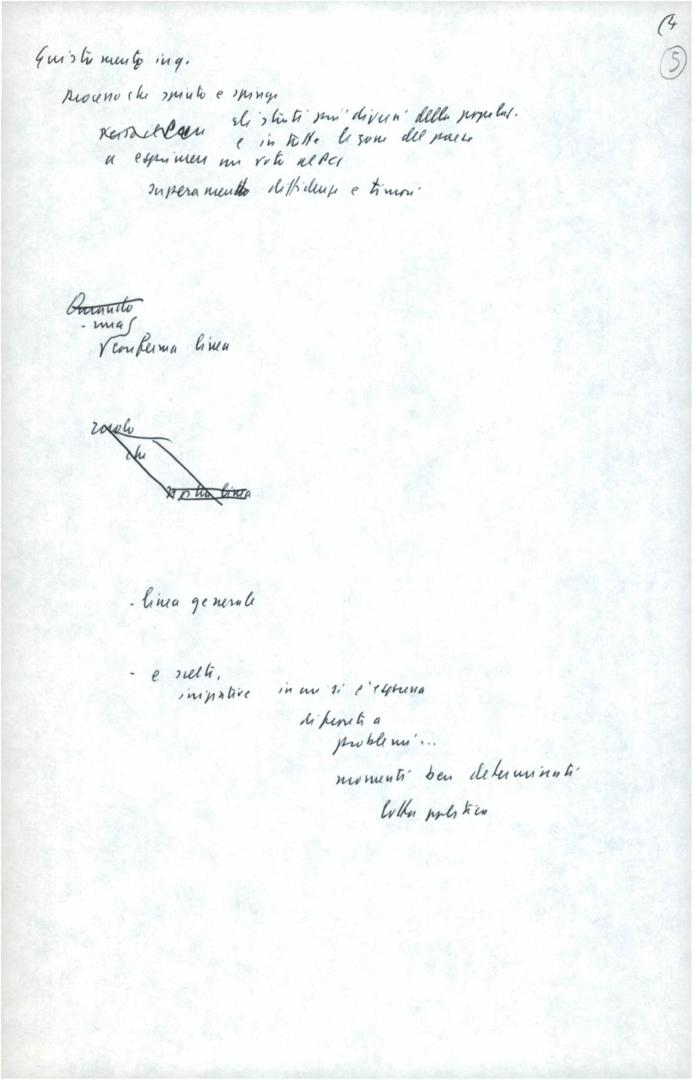 (4
5
Quistamento ing.
processo che spinto e spinge
gli strati più diversi della popolaz.
e in tutte le zone del paese
a esprimere un voto al PCI
superamento diffidenze e timori
Quanto
- ma
conferma linea
che
nostra linea
- linea generale
- e scelte,
iniziative in cui si è espressa
di fronte a
problemi...
momenti ben determinati
lotta politica